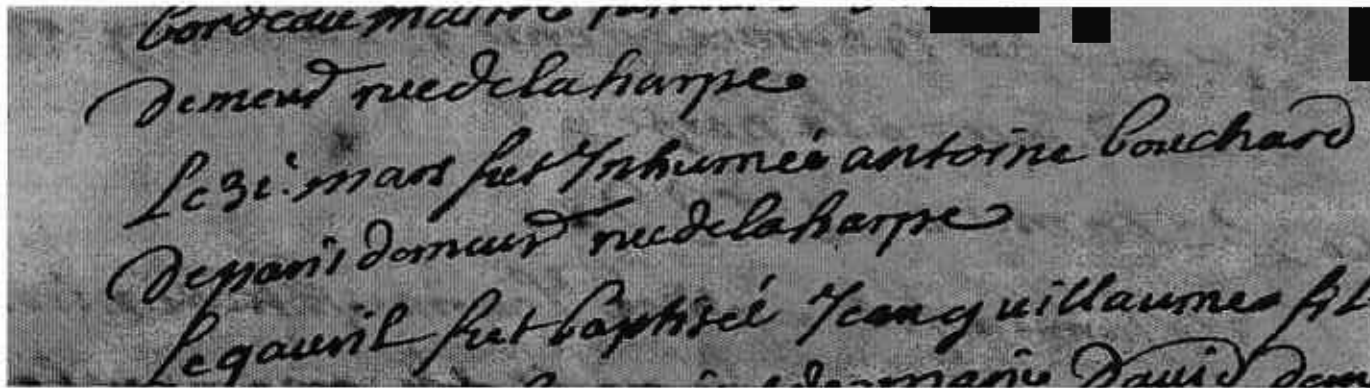 bordeau maitre
demeurt rue de la harpe
Le 3i. mars fut Inhumée antoine bouchard
de paris demeurt rue de la harpe
le 9 avril fut baptisée Jean guillaume fil
marie David